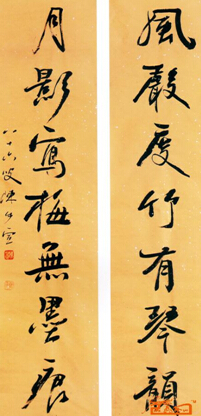 風聲度竹有琴韻
月影寫梅無墨痕
八十六叟陳